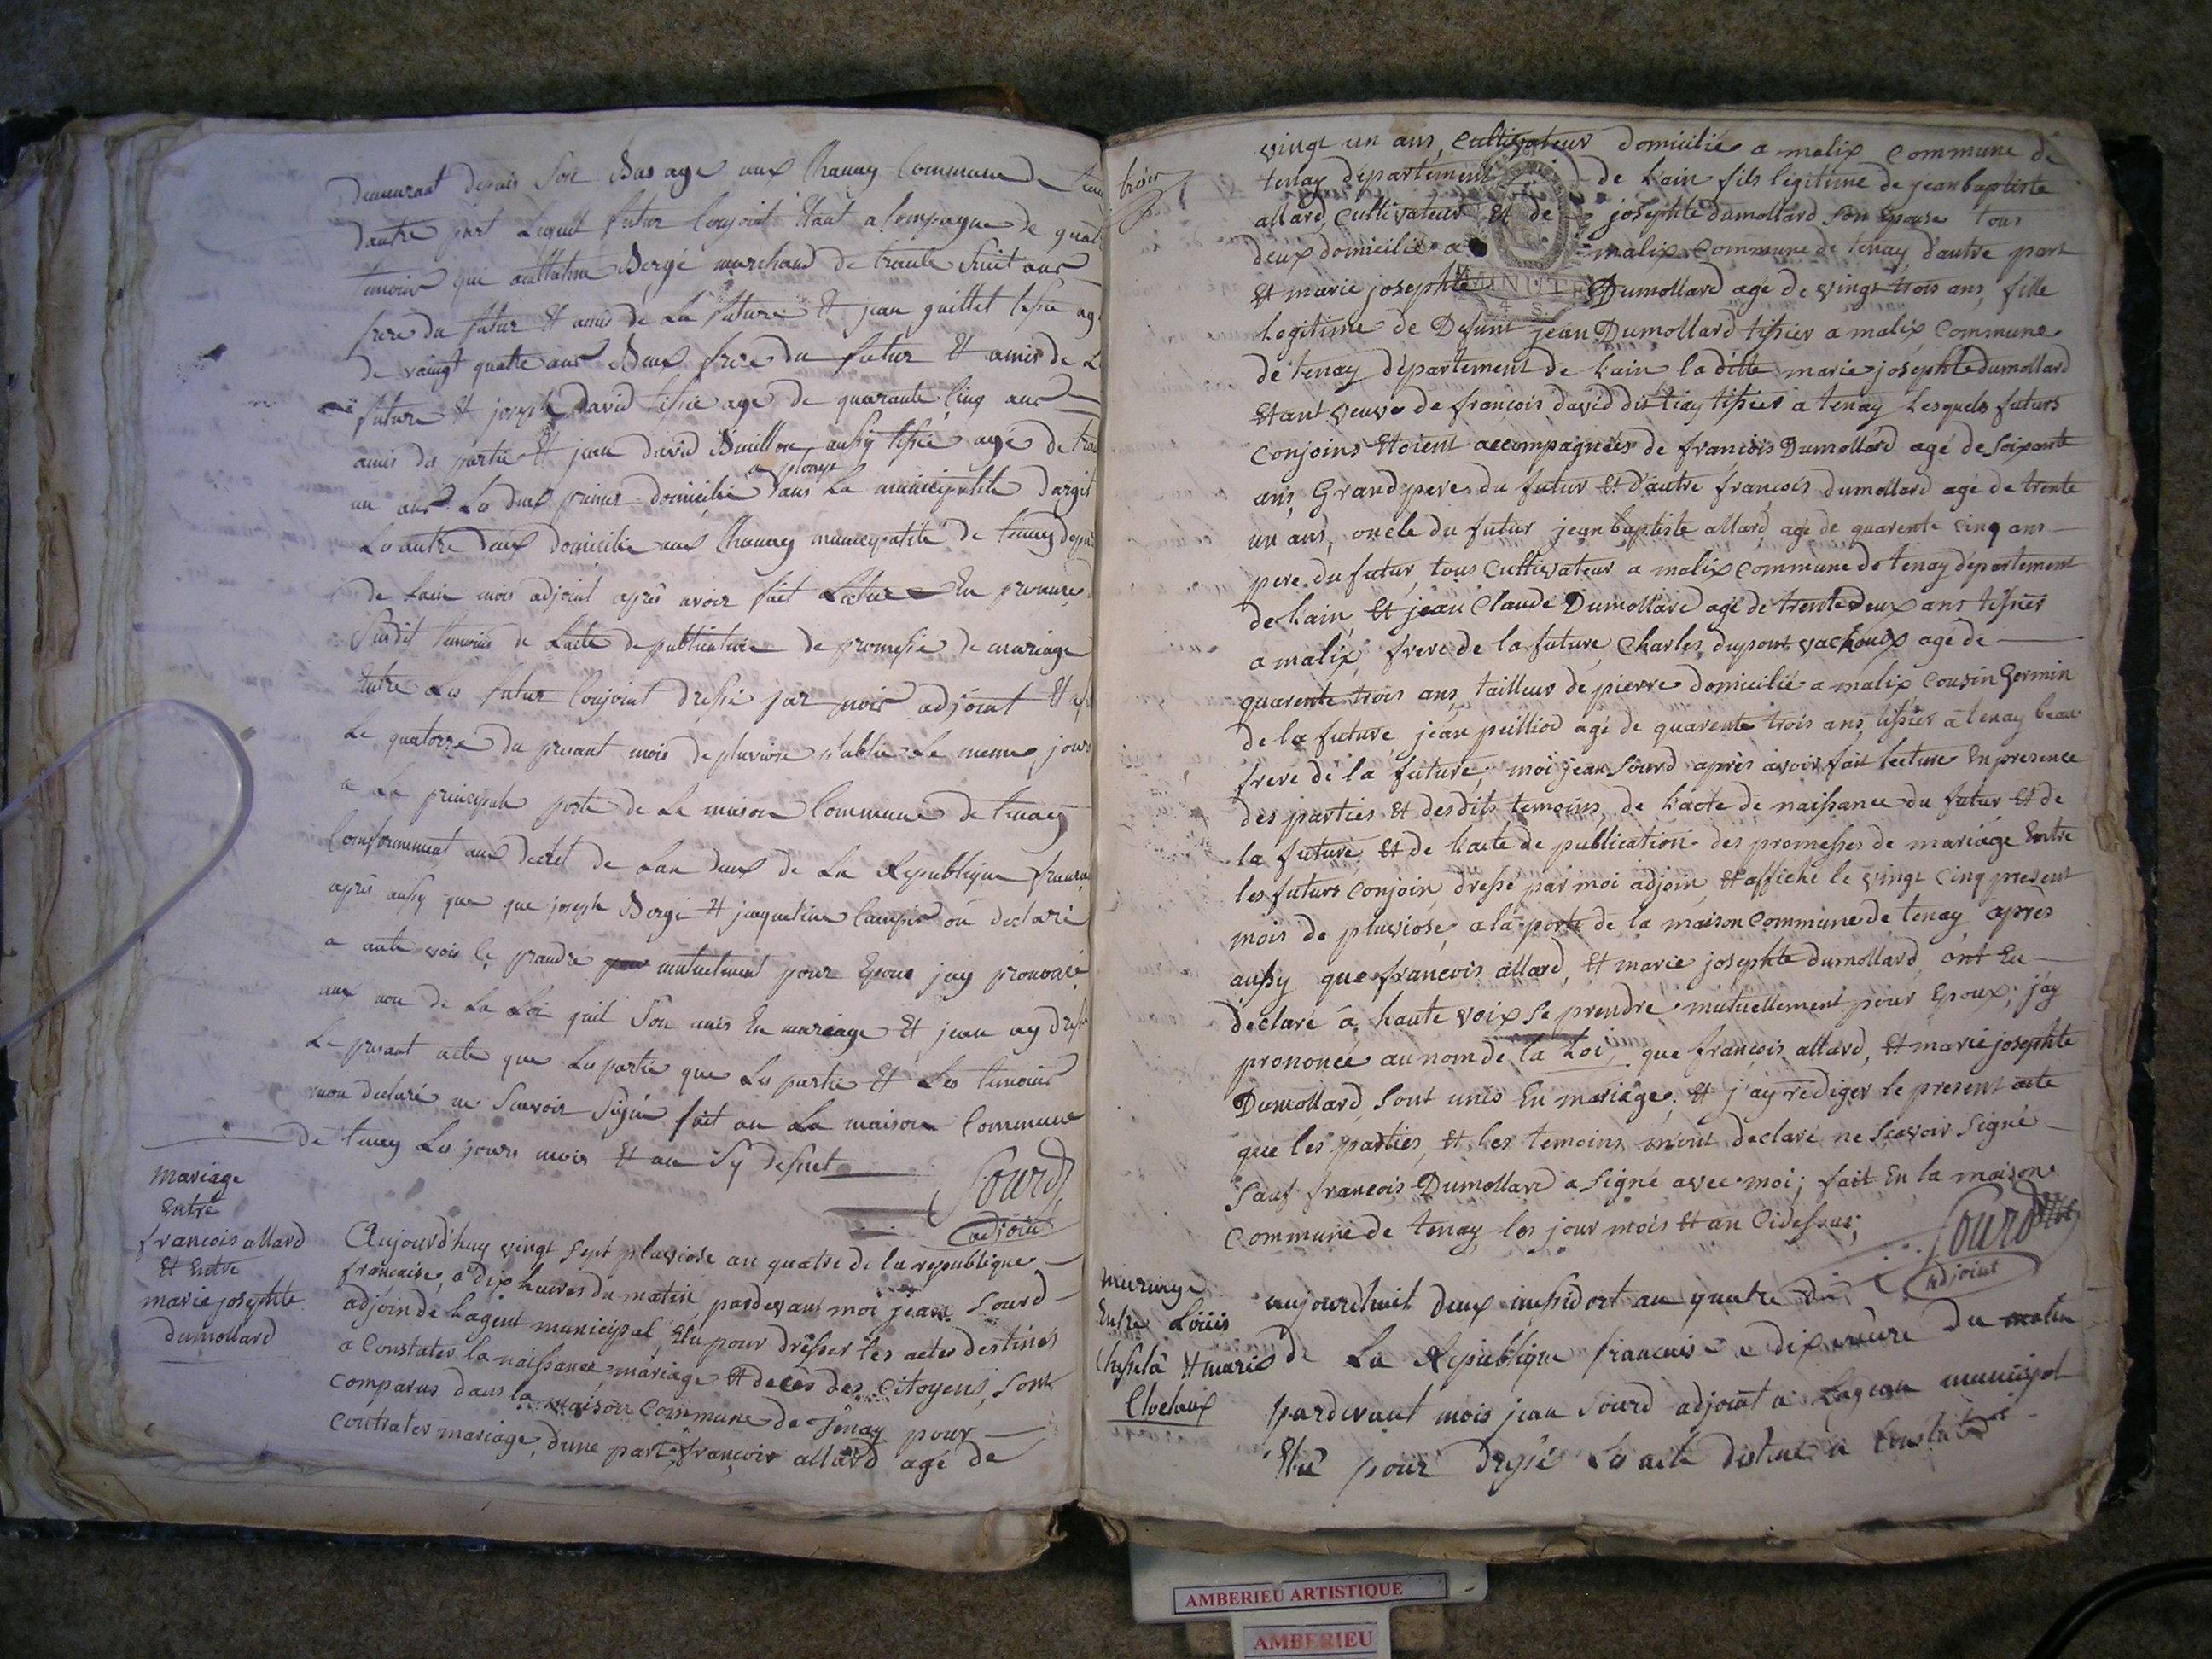 demeurant depuis son bas age aux Chanay Commune de ten
dautre part Lequel futur Conjoint Etant acompagne de quat
temoin que anthelme Bergé marchand de trante huit ans
frere du futur Et amis de La future Et jean guillet tissie ag
de vaingt quatre ans Beux frere du futur Et amis de L
future Et joseph david tissie age de quarante cinq ans
amis des partie Et jean david Bouillon aussy tissié agé de tra
un ans Les deux primier domicilié a plomp dans La municipalité dargis
Les autre deux domicilie aux Chanay municipalité de tenay depar
de Lain mois adjoint apres avoir fait Lecture En presance
Susdit temoins de Lacte de publication de promesse de mariage
Entre Les futur Conjoint dressé par mois adjoint Et afi
Le quatorze du presant mois de pluviose publie Le meme jour
a La principale porte de La maison Commune de tenay
Conformement aux decret de Lan deux de La Republique francai
après aussy que que joseph Bergé Et jaqueline Campis on declaré
a aute vois ce prandre mutuelment pour Epoux jay prononcé
aux non de La Loi quil Son unis En mariage Et jean ay dress
Le presant acte que Les partie que Les partie Et Les temoins
mon declaré ne Savoir Signé fait an La maison Commune
de tenay Les jours mois Et an Sy dessuet
Sourd
adjoint
Mariage
Entre
francois allard
Et Entre
marie josephte
dumollard
Aujourd'huy vingt Sept pluviose an quatre de la republique
francaise, a dix heures du matin pardevant moi jean Sourd
adjoin de Lagent municipal, Elu pour dresser les actes destinés
a Constater la naissance mariage Et deces des Citoyens, Sont
comparus dans la maison Commune de Tenay pour
contrater mariage, dune part francois allard agé de
vingt un ans, Cultivateur domicilié a malix commune de
tenay département de Lain fils légitime de jean baptiste
allard, Cultivateur Et de josephte dumollard Son Epouse tous
deux domicilié a malix Commune de tenay d'autre part
Et marie josephte Dumollard agé de vingt trois ans, fille
Legitime de Defunt jean Dumollard tissier a malix Commune
de tenay département de Lain la ditte marie josephte dumollard
Etant veuve de francois david dit tiay tissier a tenay Lesquels futurs
Conjoins Etoient accompagnées de francois Dumollard agé de Soixante
ans, Grand pere du futur Et d'autre francois dumollard agé de trente
un ans, oncle du futur jean baptiste allard agé de quarente cinq ans
pere du futur, tous Cultivateur a malix Commune de tenay département
de Lain, Et jean Claude Dumollard agé de trente deux ans tissier
a malix, frere de la future, Charles dupont vachoux agé de
quarente trois ans tailleur de pierre domicilié a malix, Cousin Germin
de la future jean peilliod agé de quarente trois ans tissier a tenay beau
frere de la future, moi jean Sourd après avoir fait lecture En presence
des parties Et desdits temoins, de L'acte de naissance du futur Et de
la future Et de L'acte de publication des promesses de mariage Entre
les futurs conjoin dressé par moi adjoin Et affiché le vingt cinq present
mois de pluviose a la porte de la maison Commune de tenay, après
aussy que francois allard, Et marie josephte dumollard ont Eu
déclaré a haute voix Se prendre mutuellement pour Epoux, j'ay
prononcé au nom de la Loi, que francois allard, Et marie josephte
Dumollard Sont unis En mariage. Et j'ay rediger le present acte
que les parties, Et les temoins m'ont declaré ne Scavoir Signé
Sauf francois Dumollard a Signé avec moi; fait En la maison
Commune de tenay les jour mois Et an Cidessus;
Sourd
adjoint
MINUTE
Mariage
Entre Louis
Et marie
aujourdhuit deux messidort an quatre
de La Republique francaise a dix eure du matin
pardevant mois jean Sourd adjoint a Lagean municipal
Elu pour dressé Les acte destiné a Constaté
AMBERIEU ARTISTIQUE
AMBERIEU